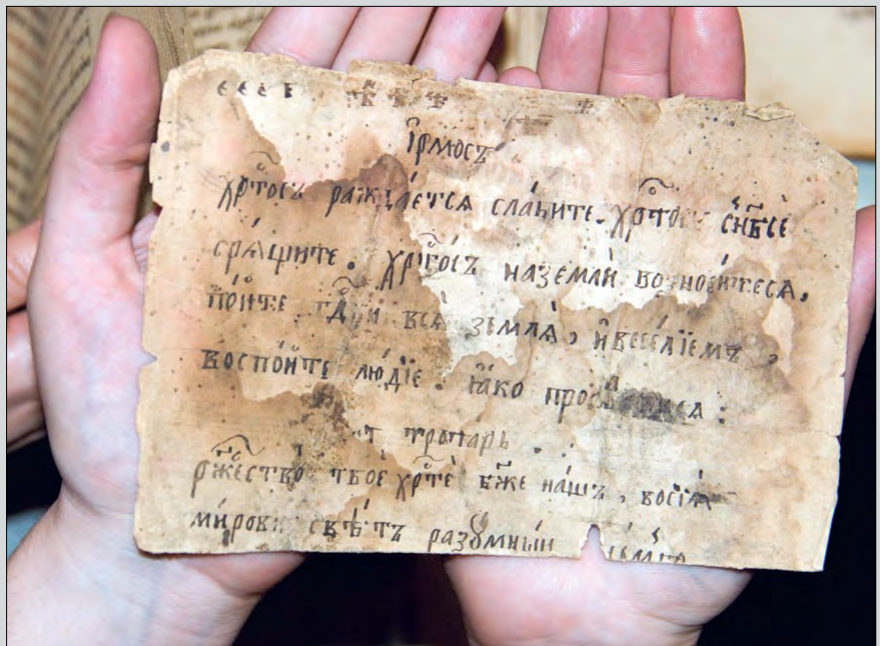 І҆рмосъ
хр҃тосъ ражда́етсѧ сла́вите. хр҃тосъ съ нб҃сѐ
срѧ́щите. хр҃тосъ на землѝ возноси́тесѧ,
по́йте гд҃ви всѧ̀ землѧ̀, и҆ весе́лїемъ,
воспо́йте лю́дїе. ꙗ҆́ко
тропарь
рж҃ество̀ твоѐ хр҃тѐ бж҃е на́шъ, восїѧ̀
ми́рови свѣ́тъ разꙋ́мныи